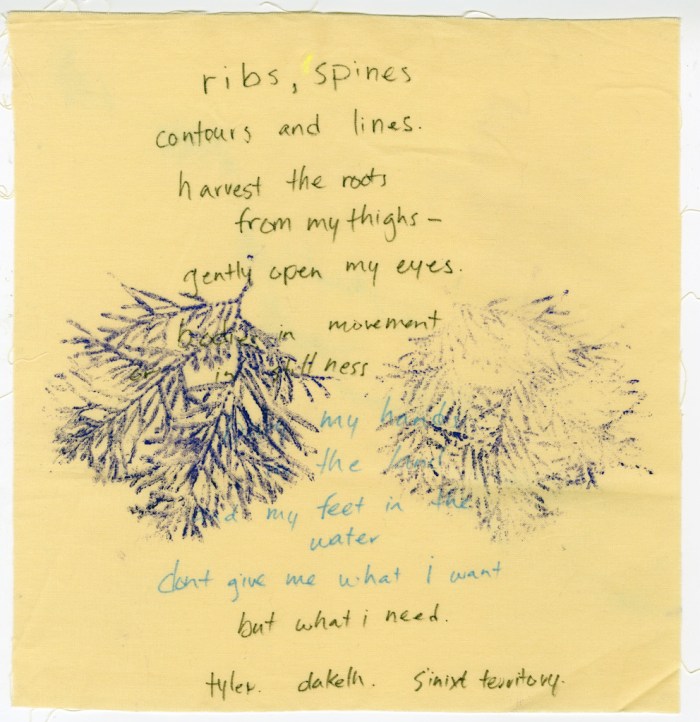 ribs, spines
contours and lines.
harvest the roots
from my thighs –
gently open my eyes.
bodies in movement
or in stillness
my hands
the land
my feet in the
water
dont give me what I want
but what i need.
tyler. dakelh. Sinixt territory.